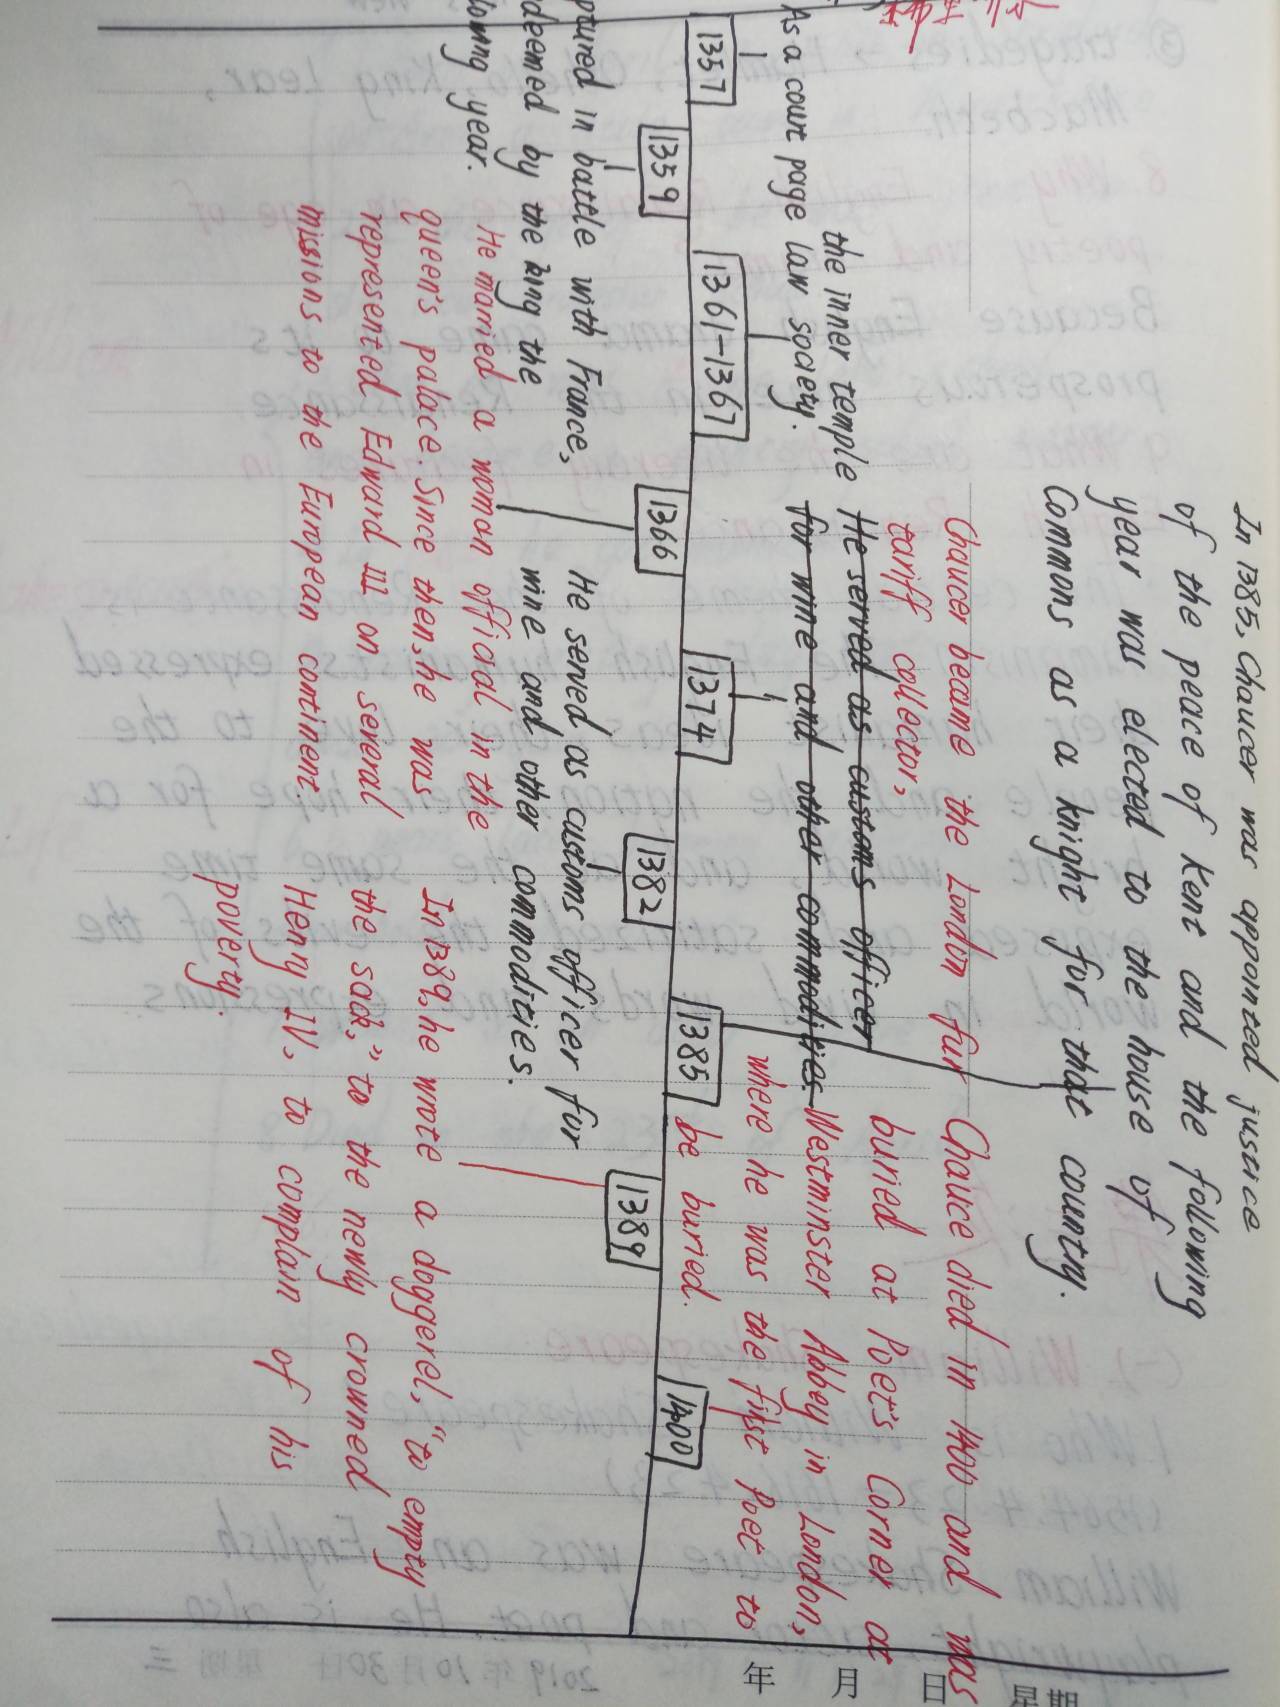 In 1385, Chaucer was appointed justice
of the peace of Kent and the following
year was elected to the house of
Commons as a knight for that country.
Chaucer became the London fur
tariff collector,
He served as customs officer
for wine and other commodities.
Chauce died in 1400 and was
buried at Poet's Corner at
Westminster Abbey in London,
where he was the first Poet to
be buried.
the inner temple
As a court page law society.
1357
1359
1361-1367
1366
1374
1382
1385
1389
1400
ptured in battle with France,
deemed by the king the
lowing year.
He served as customs officer for
wine and other commodities.
He married a woman official in the
queen's palace. Since then she was
represented Edward III on several
missions to the European continent.
In 1389, he wrote a doggerel, "to empty
the sack," to the newly crowned
Henry IV, to complain of his
poverty.
年 月 日 星期